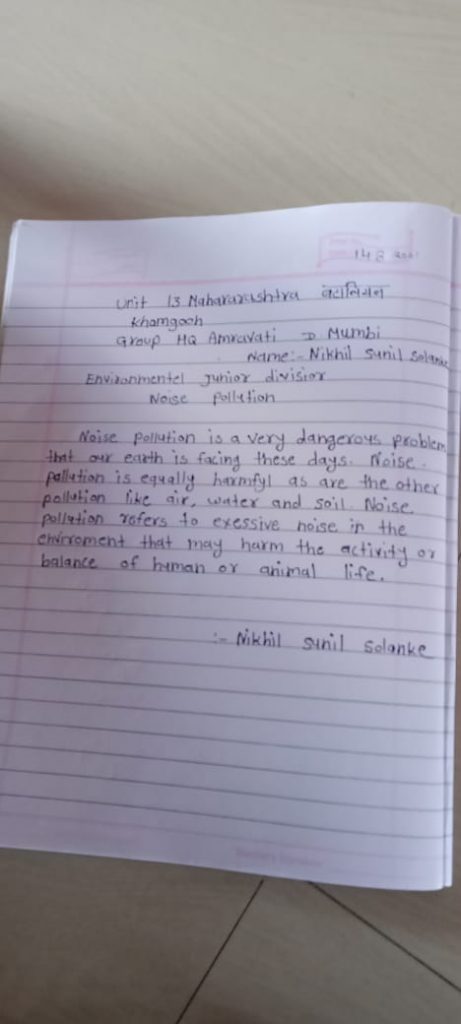 14 8 2021
Unit 13 Maharazashtra बटालियन
khamgaon
Group HQ Amravati D Mumbi
Name:- Nikhil Sunil Solanke
Environmentel Junior division
Noise pollution
Noise pollution is a very dangerous problem
that our earth is facing these days. Noise.
pollution is equally harmful as are the other
pollution like air, water and soil. Noise
pollution refers to exessive noise in the
enviroment that may harm the activity or
balance of human or animal life.
:- Nikhil Sunil Solanke